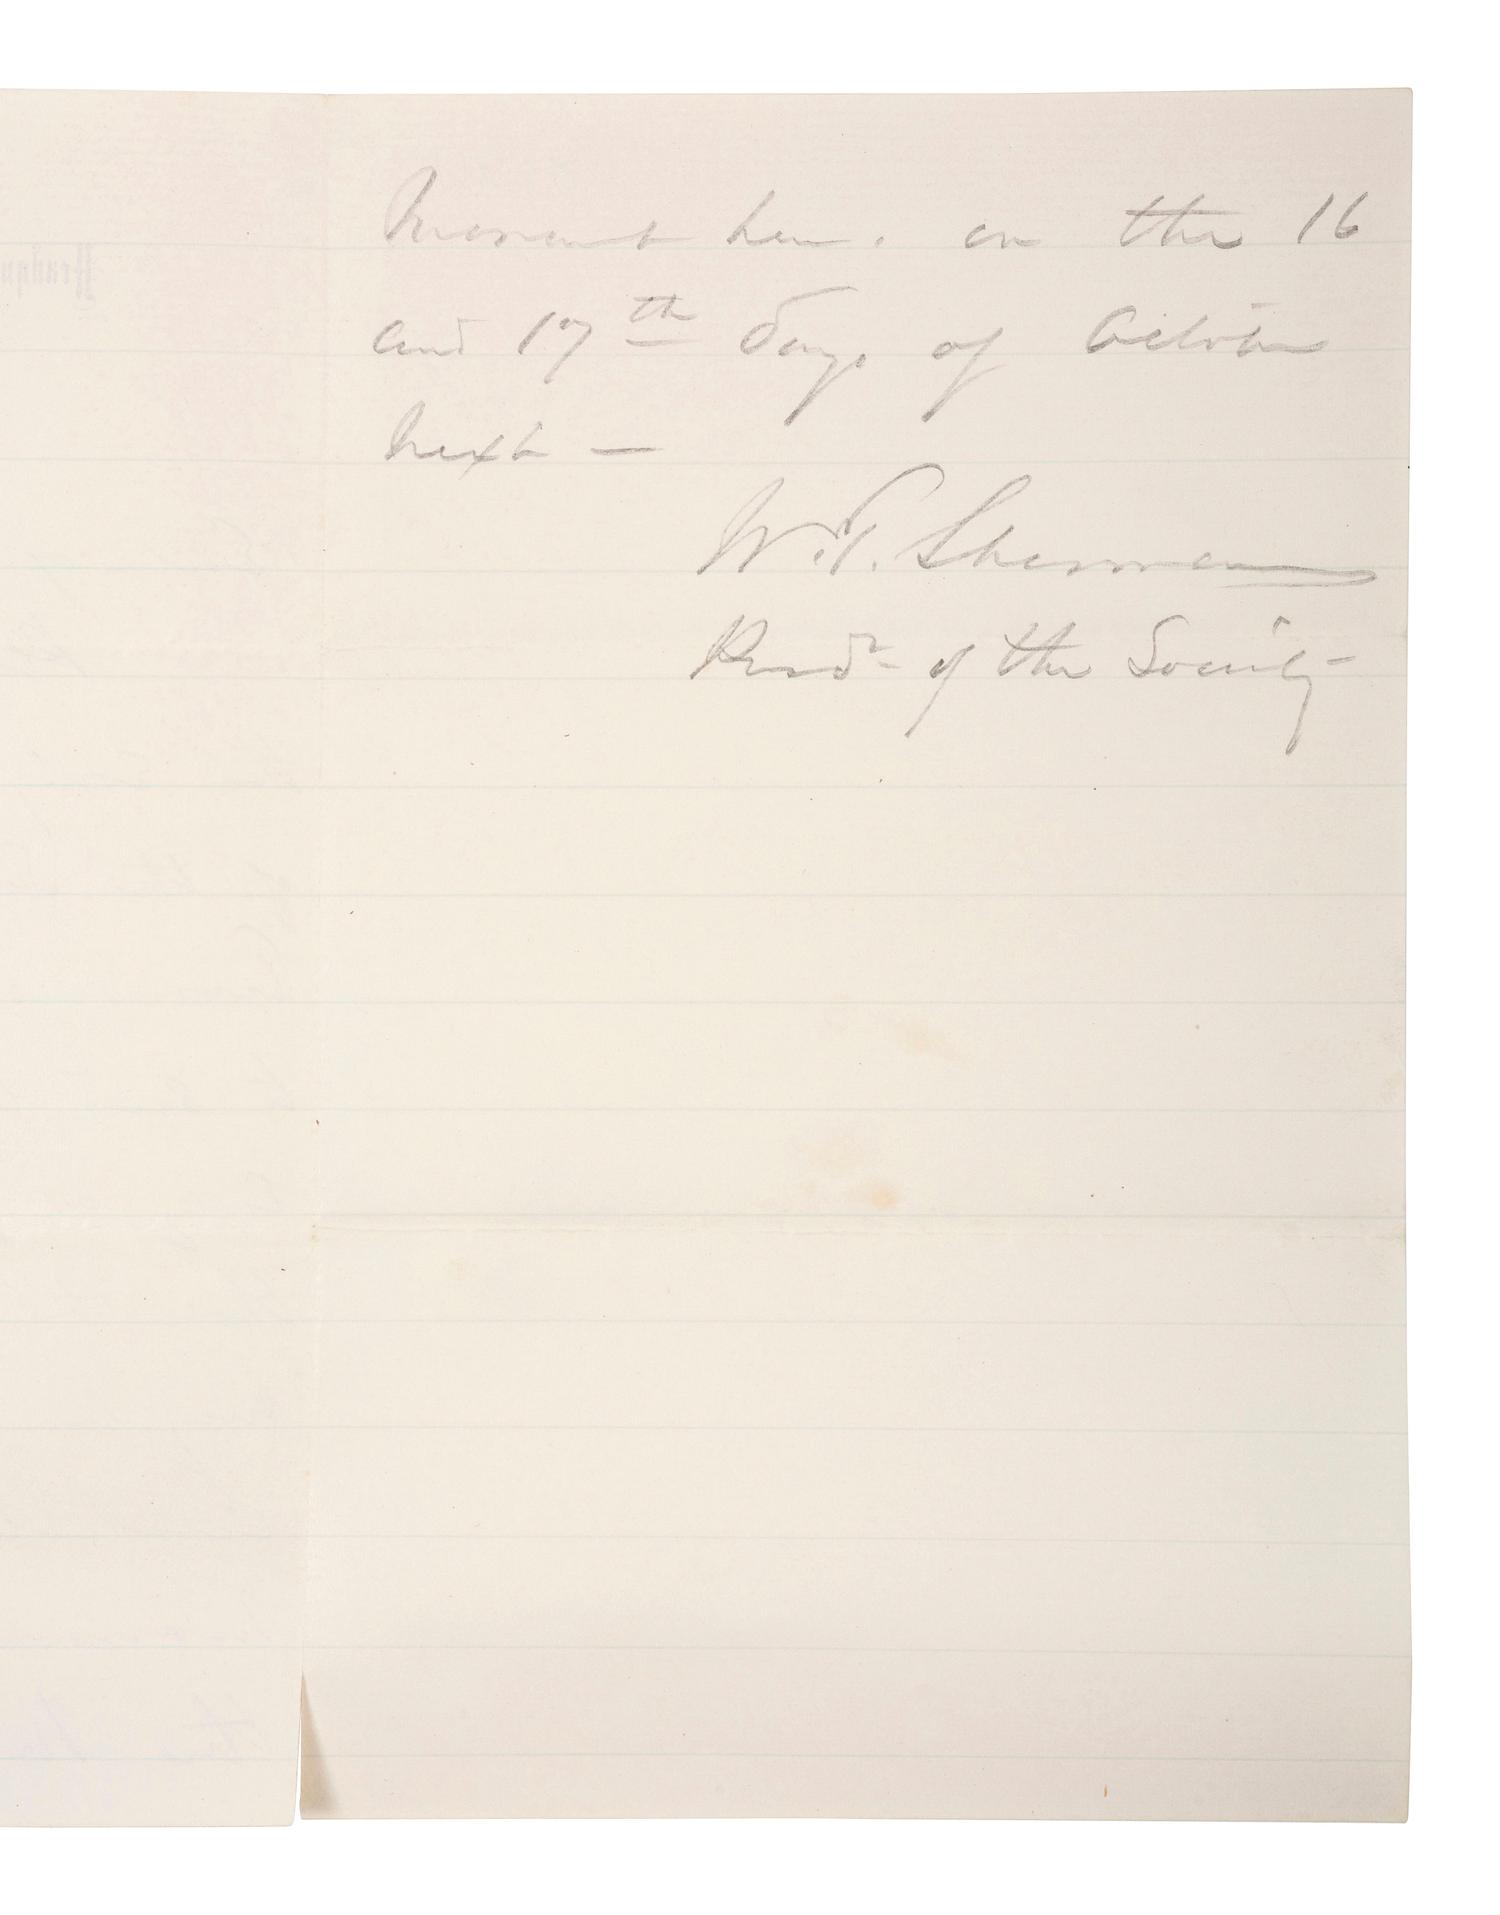 on the 16
and 17th Days of October
Next —
W.T. Sherman
Presdt of the Society